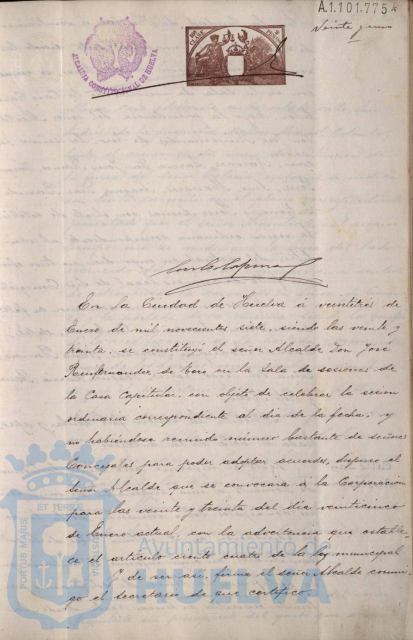 A.1.101.775
Veinte y uno
ALCALDIA CONSTITUCIONAL DE HUELVA
En la Ciudad de Huelva á veintitrés de
Enero de mil novecientos siete, siendo las veinte y
treinta, se constituyó el señor Alcalde Don José
de Toro en la Sala de sesiones de
la Casa Capitular, con objeto de celebrar la sesion
ordinaria correspondiente al dia de la fecha; y
no habiéndose reunido número bastante de señores
Concejales para poder adoptar acuerdos, dispuso el
señor Alcalde que se convocara á la Corporacion
para las veinte y treinta del dia veinticinco
de Enero actual, con la advertencia que estable-
ce el articulo ciento cuatro de la ley municipal
Y de ser asi, firma el señor Alcalde conmi-
go el secretario de que certifico.
PORTUS MARIS
ET TERR
Ayuntamiento
HUELVA